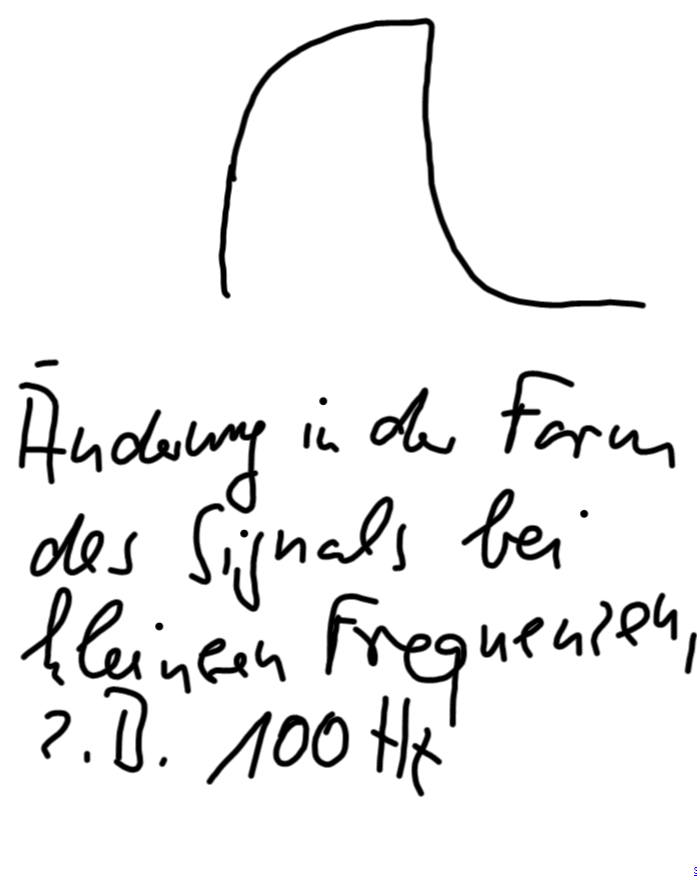 Änderung in der Form
des Signals bei
kleineren Frequenzen,
z.B. 100 Hz